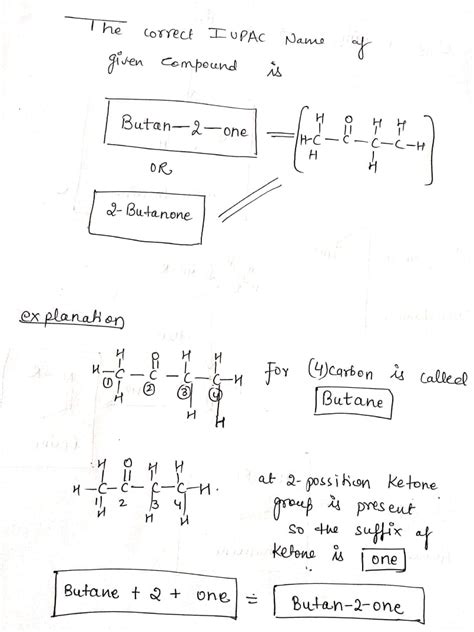 The correct IUPAC Name of
given Compound is
Butan-2-one
OR
2-Butanone
H O H H
H-C-C-C-C-H
H H
explanation
H O H H
H-C-C-C-C-H
① ② ③ ④
H H H
for (4)carbon is called
Butane
H O H H
H-C-C-C-C-H
1 2 3 4
H H H
at 2-possition Ketone
group is present
so the suffix of
Ketone is one
Butane + 2 + one = Butan-2-one